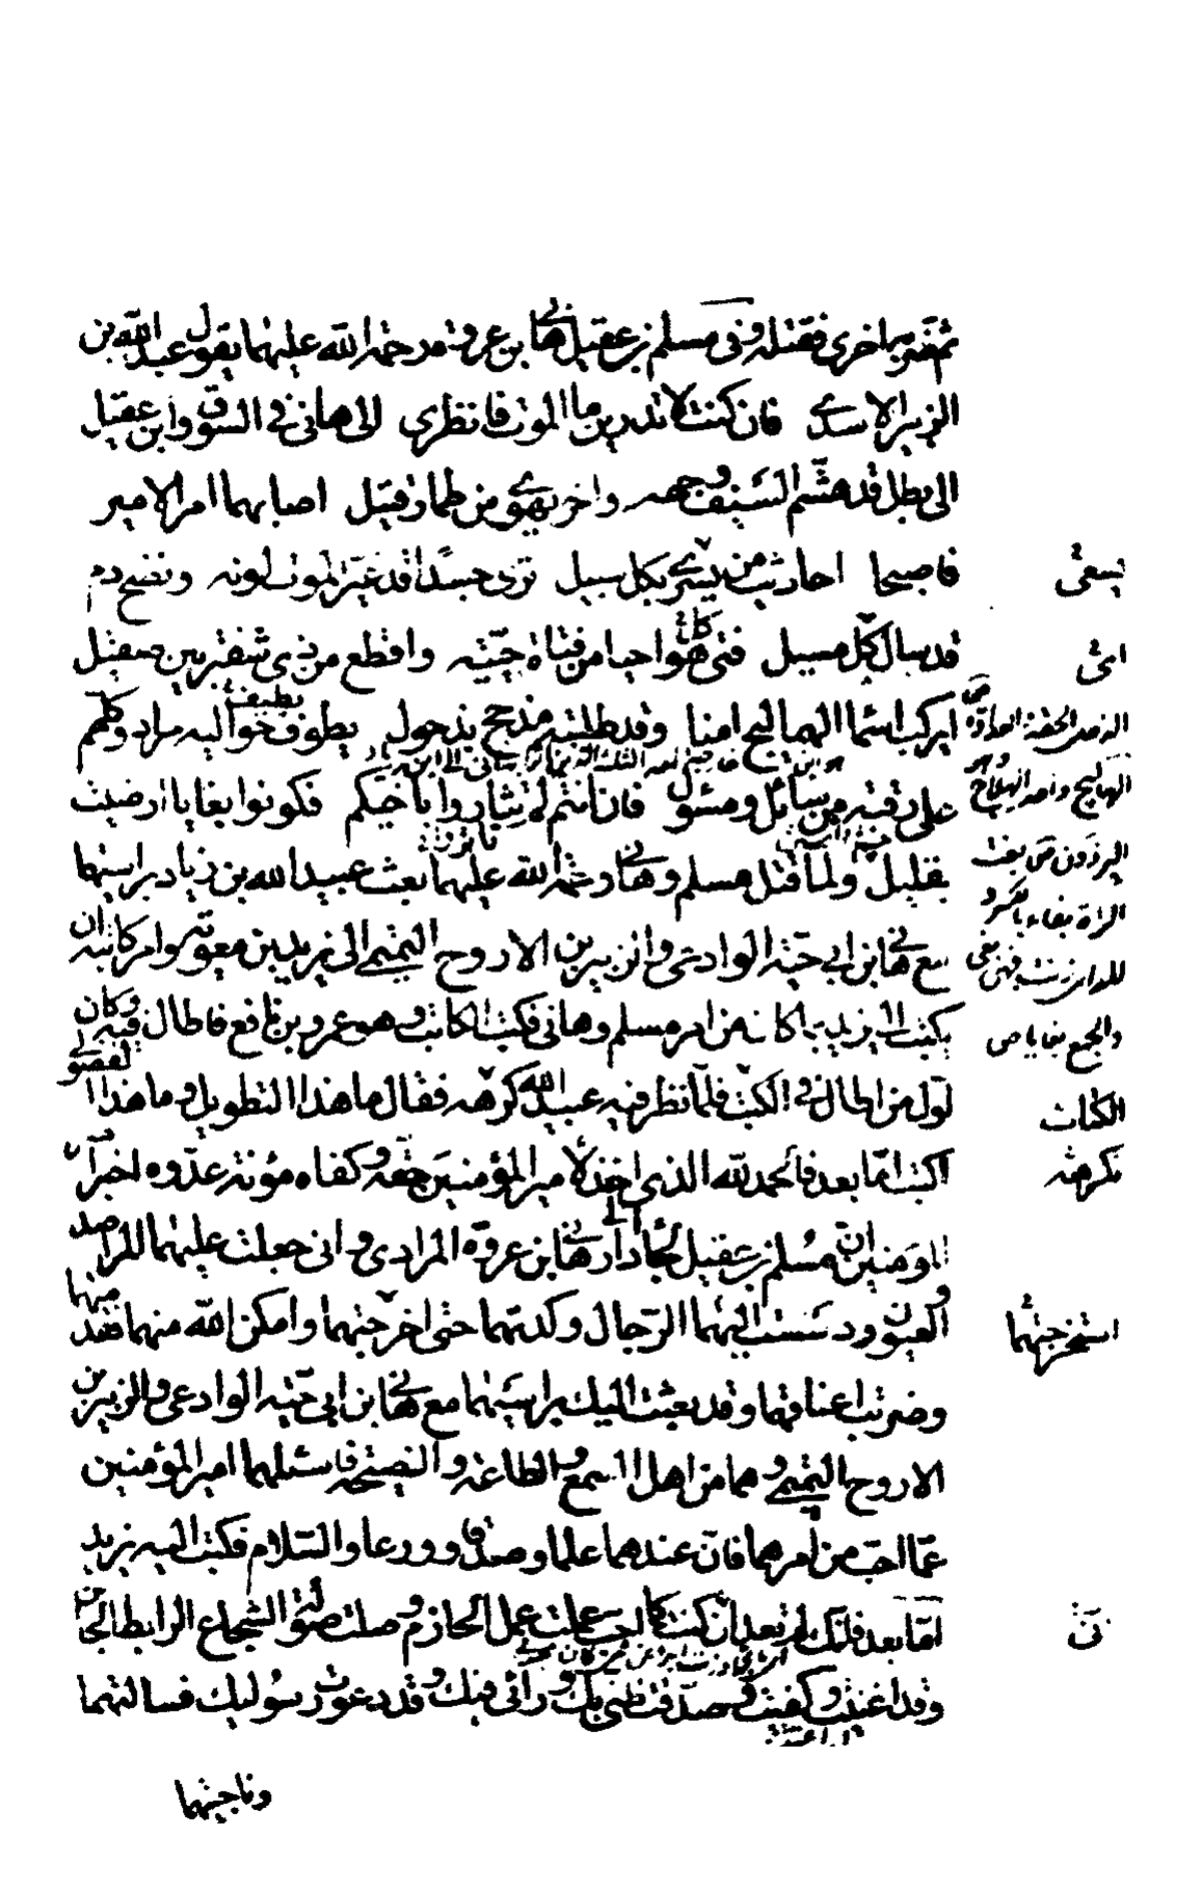 ثم ضربه اخرى فقتله وفي مسلم بن عقيل وهاني بن عروة رحمة الله عليهما يقول عبد الله بن
الزبير الاسدي فان كنت لا تدرين ما الموت فانظري الى هاني في السوق وابن عقيل
الى بطل قد هشّم السيف وجهه واخر يهوي من طمار قتيل اصابهما امر الامير
فاصبحا احاديث من يسري بكل سبيل ترى جسدًا قد غيّر الموت لونه ونضح دم
قد سال كلّ مسيل فتى هو احيا من فتاة حييّه واقطع من ذي شفرتين صقيل
ايركب اسما الهماليج امنا وقد طلبته مذحج بذحول يطوف حواليه مراد وكلهم
على رقبة من سائل ومسئول فان انتم لم تثاروا باخيكم فكونوا بغايا ارضيت
بقليل ولما قتل مسلم وهاني رحمة الله عليهما بعث عبيد الله بن زياد براسيهما
مع هاني بن ابي حيّة الوادعي والزبير بن الاروح التميمي الى يزيد بن معوية وامر كاتبه ان
يكتب الى يزيد بما كان من امر مسلم وهاني فكتب الكاتب وهو عمرو بن نافع فاطال فيه وكان
اول من اطال في الكتب فلمّا نظر فيه عبيد الله كرهه فقال ما هذا التطويل وما هذا الفضول
اكتب امّا بعد فالحمد لله الذي اخذ لامير المؤمنين بحقه وكفاه مؤنة عدوه اخبر امير
المؤمنين ان مسلم بن عقيل لجا الى دار هاني بن عروة المرادي واني جعلت عليهما المراصد
والعيون ودسست اليهما الرّجال وكدتهما حتى اخرجتهما وامكن الله منهما فقدمتهما
وضربت اعناقهما وقد بعثت اليك براسيهما مع هاني بن ابي حيّة الوادعي والزبير بن
الاروح التميمي وهما من اهل السمع والطاعة والنصيحة فليسئلهما امير المؤمنين
عمّا احبّ من امرهما فانّ عندهما علما وصدقا وورعا والسّلام فكتب اليه يزيد
امّا بعد فانّك لم تعد ان كنت كما احب عملت عمل الحازم وصلت صولة الشجاع الرابط الجاش
وقد اغنيت وكفيت وصدّقت ظنّي بك ورائي فيك وقد دعوت رسوليك فسالتهما
وناجيتهما
يسعى
الهماليج واحد الهملاج
البرذون ص بغت
المراة بغاء بالكسر و
والجمع بغايا ص
الكتاب
تكرهه
استخرجتهما